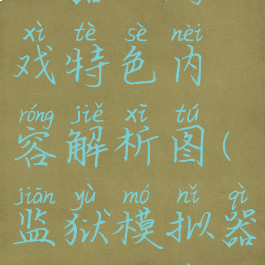 xì tè sè nèi
戏特色内
róng jiě xī tú
容解析图(
jiān yù mó nǐ qì
监狱模拟器